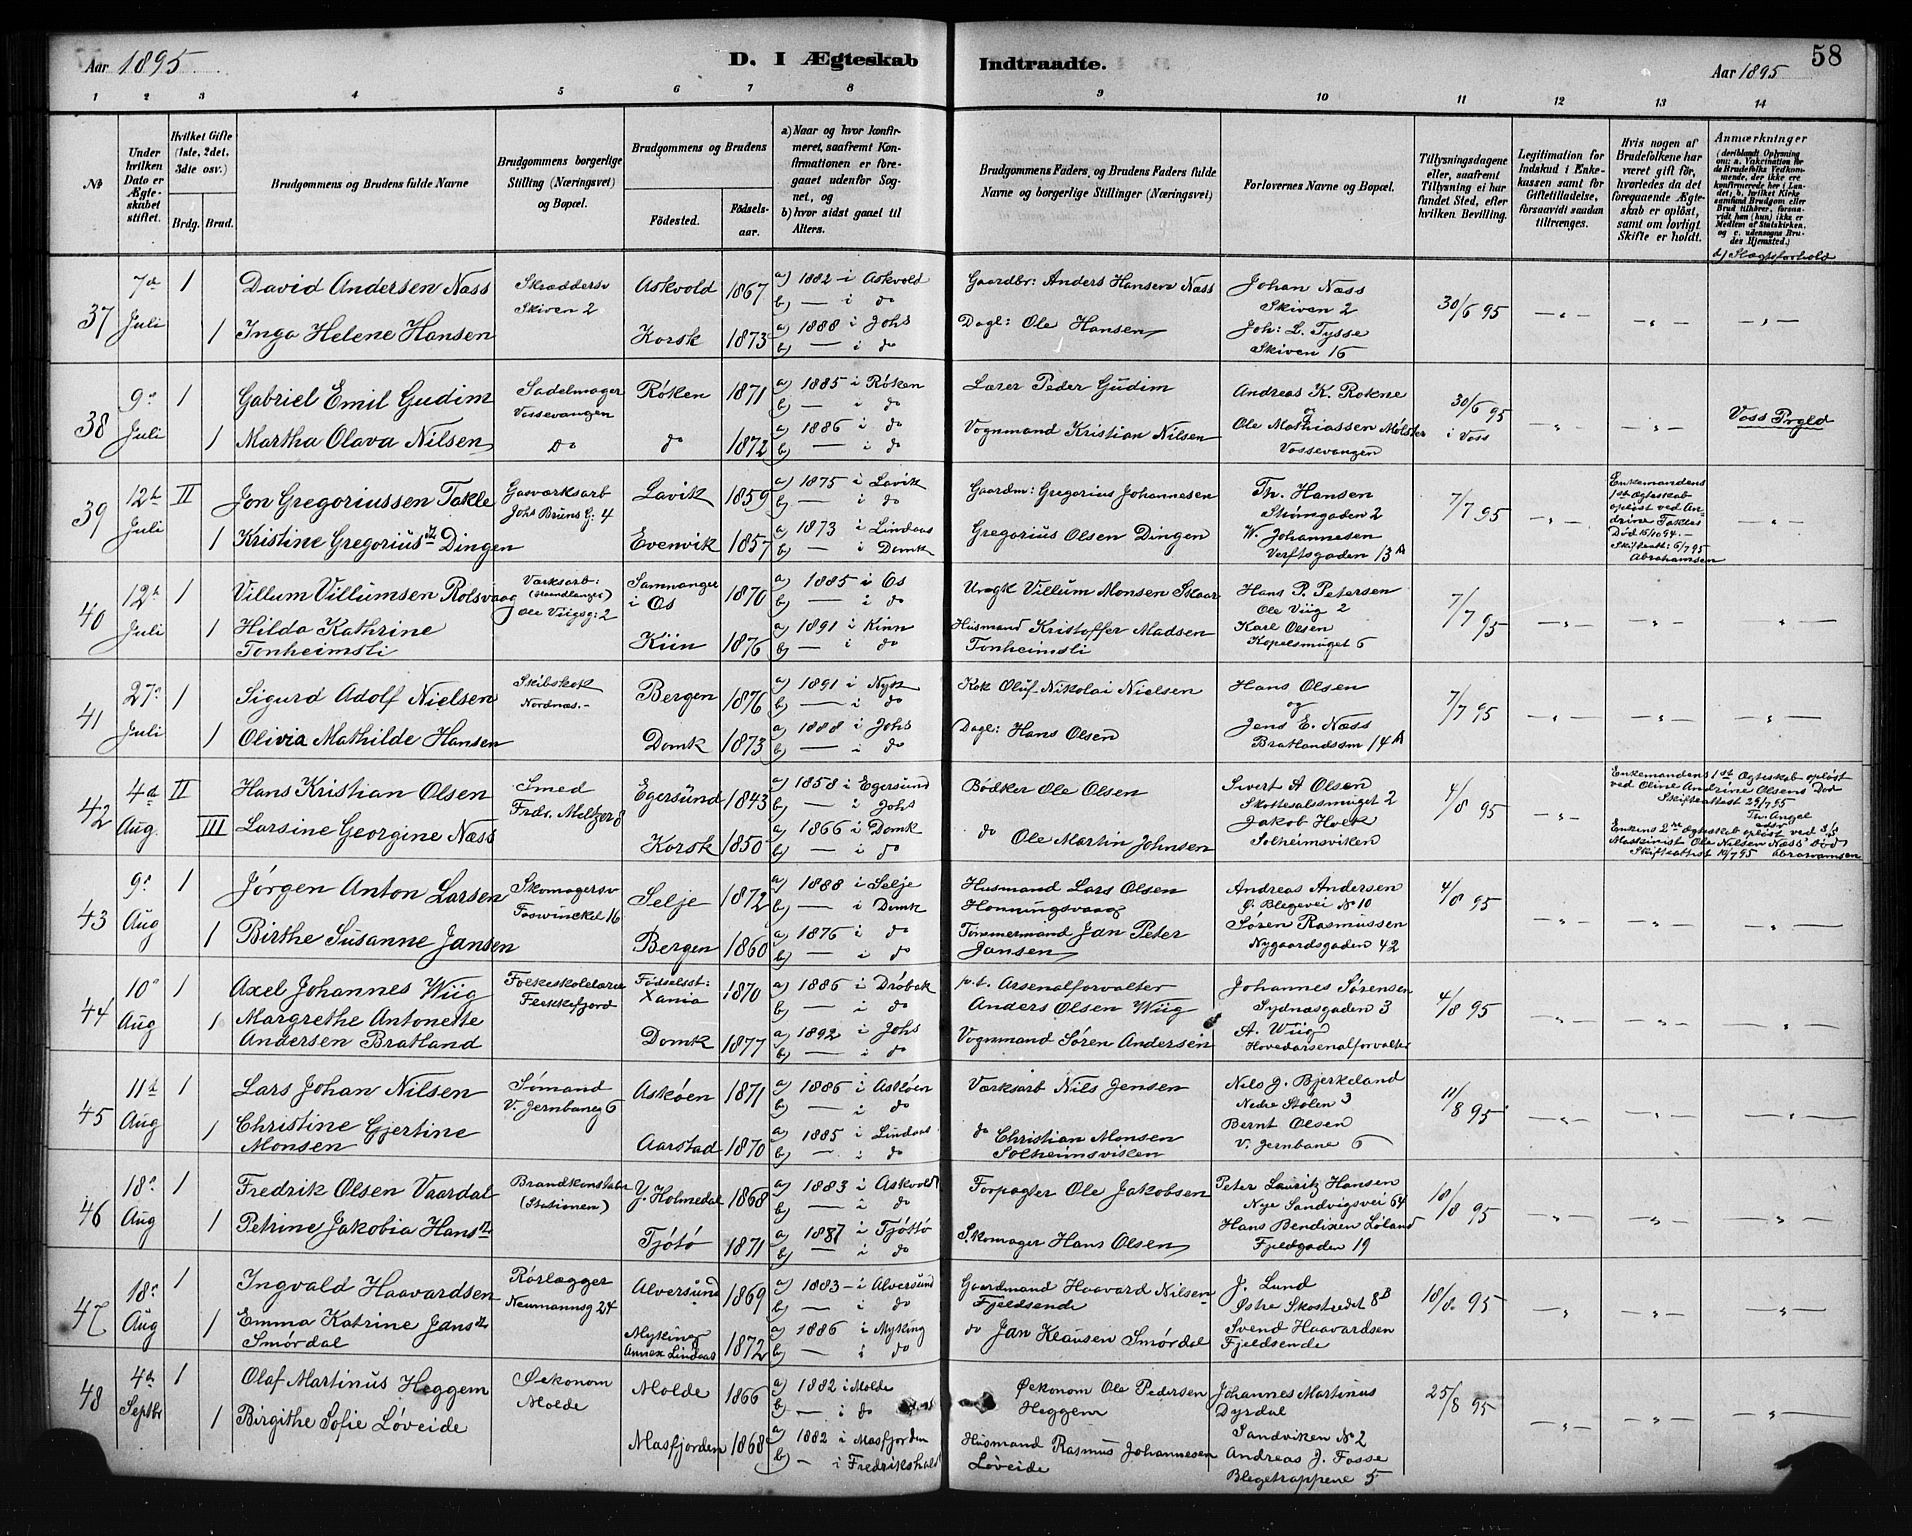 58
Aar 1895
D. I Ægteskab Indtraadte.
Aar 1895
1 2 3 4 5 6 7 8 9 10 11 12 13 14
No
Under hvilken Dato er Ægteskabet stiftet.
Hvilket Gifte (1ste, 2det, 3dte osv.)
Brdg. Brud.
Brudgommens og Brudens fulde Navne
Brudgommens borgerlige Stilling (Næringsvei) og Bopæl.
Brudgommens og Brudens
Fødested. Fødselsaar.
a) Naar og hvor konfirmeret, saafremt Konfirmationen er foregaaet udenfor Sognet, og
b) hvor sidst gaaet til Alters.
Brudgommens Faders, og Brudens Faders fulde Navne og borgerlige Stillinger (Næringsvei)
Forlovernes Navne og Bopæl.
Tillysningsdagene eller, saafremt Tillysning ei har fundet Sted, efter hvilken Bevilling.
Legitimation for Indskud i Enkekassen samt for Giftetilladelse, forsaavidt saadan tiltrænges.
Hvis nogen af Brudefolkene har været gift før, hvorledes da det foregaaende Ægteskab er opløst, samt om lovligt Skifte er holdt.
Anmærkninger
(deriblandt Oplysning om: a. Vakcination for de Brudefolks Vedkommende, der ikke ere konfirmerede her i Landet; b. hvilket Kirkesamfund Brudgom eller Brud tilhører, forsaavidt han (hun) ikke er Medlem af Statskirken, og c. udensogns Brudes Hjemsted.)
d) Slægtsforhold
37 7de Juli 1 David Andersen Næss Skræddersv Skiven 2 Askvold 1867 a) 1882 i Askvold b) — i do Gaardbr: Anders Hansen Næss Johan Næss Skiven 2 30/6 95
1 Inga Helene Hansen Korsk 1873 a) 1888 i Johs b) — i do Dagl: Ole Hansen Joh: L. Tysse Skiven 16
38 9de Juli 1 Gabriel Emil Gudim Sadelmager Vossevangen Røken 1871 a) 1885 i Røken b) — i do Lærer Peder Gudim Andreas K. Rokne og 30/6 95 i Voss Voss Prgld
1 Martha Olava Nilsen Do do 1872 a) 1886 i do b) — i do Vognmand Kristian Nilsen Ole Mathiassen Mølster Vossevangen
39 12te Juli II Jon Gregoriussen Takle Gasværksarb Johs Bruns G: 4 Lavik 1859 a) 1875 i Lavik b) — i do Gaardm: Gregorius Johannesen Th. Hansen Strømgaden 2 7/7 95 Enkemandens 1ste Ægteskab opløst ved Andrine Takles Død 15/10 94. — Skifteatt: 6/7 95 Abrahamsen
1 Kristine Gregoriusdtr Dingen Evenvik 1857 a) 1873 i Lindaas b) — i Domk Gregorius Olsen Dingen W. Johannesen Verftsgaden 13 A
40 12te Juli 1 Villum Villumsen Rolsvaag Værksarb: (Haandlanger) Ole Viigsg: 2 Samnanger i Os 1870 a) 1885 i Os b) — i do Villum Monsen Skaar Hans P. Petersen Ole Viig 2 7/7 95
1 Hilda Kathrine Tonheimsli Kiin 1876 a) 1891 i Kinn b) — i do Husmand Kristoffer Madsen Tonheimsli Karl Olsen Kapelsmuget 6
41 27de Juli 1 Sigurd Adolf Nielsen Skibskok Nordnæs. - Bergen 1876 a) 1891 i Nyk b) — i do Kok Oluf Nikolai Nielsen Hans Olsen og 7/7 95
1 Olivia Mathilde Hansen Domk 1873 a) 1888 i Johs b) — i do Dagl: Hans Olsen Jens E. Næss Bratlandssm 14 A
42 4de Aug. II Hans Kristian Olsen Smed Frdr. Meltzer 8 Egersund 1843 a) 1858 i Egersund b) — i Johs Bødker Ole Olsen Sivert A Olsen Skottesalsmuget 2 4/8 95 Enkemandens 1ste Ægteskab opløst ved Oline Andrine Olsens Død Skifteattest 29/7 95 Th. Angel
III Larsine Georgine Næss Korsk 1850 a) 1866 i Domk b) — i do do Ole Martin Johnsen Jakob Holk Solheimsviken Enkens 2det Ægteskab opløst ved Maskinist Ole Nilsen Næss' Død Skifteattest 10/7 95 Abrahamsen
43 9de Aug 1 Jørgen Anton Larsen Skomagersv Foswinckel 16 Selje 1872 a) 1888 i Selje b) — i Domk Husmand Lars Olsen Honningsvaag Andreas Andersen Ø. Blegevei No 10 4/8 95
1 Birthe Susanne Jansen Bergen 1860 a) 1876 i do b) — i do Tømmermand Jan Peter Jansen Søren Rasmussen Nygaardsgaden 42
44 10de Aug 1 Axel Johannes Wiig Folkeskolelærer Flekkefjord Fødselsst: Xania 1870 a) 1886 i Drøbak b) — i do p.t. Arsenalforvalter Anders Olsen Wiig Johannes Sørensen Sydnæsgaden 3 4/8 95
1 Margrethe Antonette Andersen Bratland Domk 1877 a) 1892 i Johs b) — i do Vognmand Søren Andersen A. Wiig Hovedarsenalforvalter
45 11te Aug 1 Lars Johan Nilsen Sømand V. Jernbaneg 6 Askøen 1871 a) 1886 i Askøen b) — i do Værksarb Nils Jensen Nils J. Bjerkeland Nedre Stølen 3 11/8 95
1 Christine Gjertine Monsen Aarstad 1870 a) 1885 i Lindaas b) — i do do Christian Monsen Solheimsviken Bernt Olsen V. Jernbane 6
46 18de Aug 1 Fredrik Olsen Vaardal Brandkonstabel (Stationen) Y. Holmedal 1868 a) 1883 i Askvold b) — i do Forpagter Ole Jakobsen Peter Lauritz Hansen Nye Sandvigsvei 64 18/8 95
1 Petrine Jakobia Hansdtr Tjøtø 1871 a) 1887 i Tjøttø b) — i do Skomager Hans Olsen Hans Bendixen Løland Fjeldgaden 19
47 18de Aug 1 Ingvald Haavardsen Rørlægger Neumannsg 24 Alversund 1869 a) 1883 - i Alversund b) — i do Gaardmand Haavard Nilsen Fjeldsende J. Lund Østre Skostredet 8 B 18/8 95
1 Emma Katrine Jansdtr Smørdal Myking Annex Lindaas 1872 a) 1886 i Myking b) — i do do Jan Klausen Smørdal Svend Haavardsen Fjeldsende
48 4de Septbr 1 Olaf Martinus Heggem Øekonom Molde Molde 1866 a) 1882 i Molde b) — i do Økonom Ole Pedersen Heggem Johannes Martinus Dyrdal Sandviken No 2 25/8 95
1 Birgithe Sofie Løveide Masfjorden 1868 a) 1882 i Masfjorden b) — i Fredrikshald Husmand Rasmus Johannesen Løveide Andreas J. Fosse Blegetrappene 5